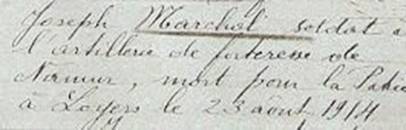 Joseph Marchal soldat à
l'artillerie de forteresse de
Namur, mort pour la Patrie
à Loyers le 23 août 1914